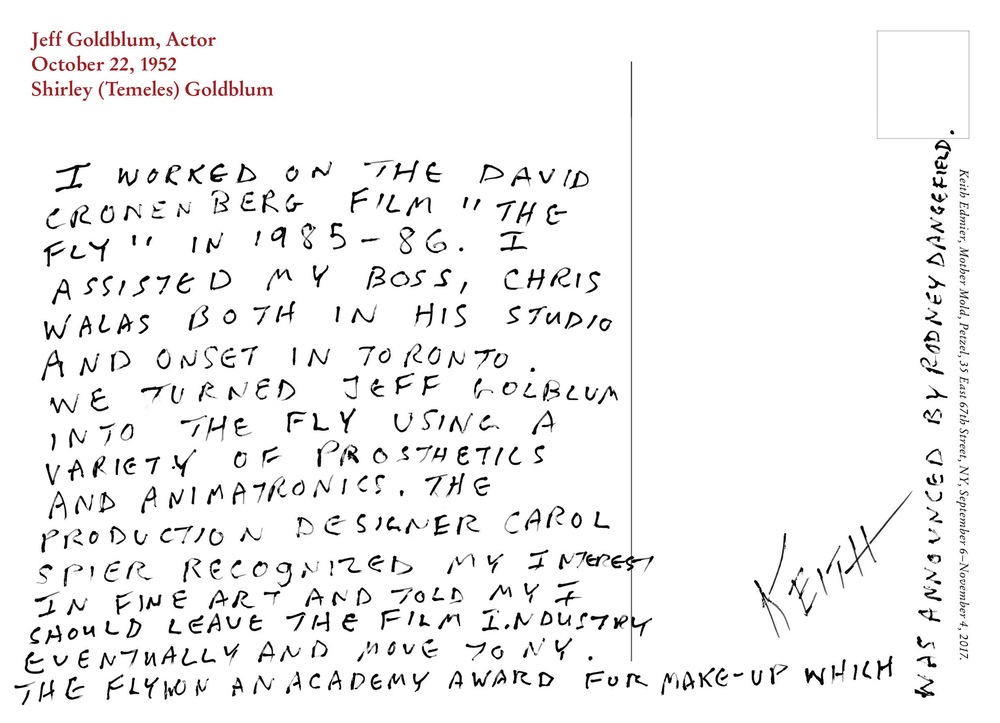 Jeff Goldblum, Actor
October 22, 1952
Shirley (Temeles) Goldblum
I WORKED ON THE DAVID
CRONENBERG FILM "THE
FLY" IN 1985-86. I
ASSISTED MY BOSS, CHRIS
WALAS BOTH IN HIS STUDIO
AND ONSET IN TORONTO.
WE TURNED JEFF GOLBLUM
INTO THE FLY USING A
VARIETY OF PROSTHETICS
AND ANIMATRONICS. THE
PRODUCTION DESIGNER CAROL
SPIER RECOGNIZED MY INTEREST
IN FINE ART AND TOLD MY I
SHOULD LEAVE THE FILM INDUSTRY
EVENTUALLY AND MOVE TO NY.
THE FLY WON AN ACADEMY AWARD FOR MAKE-UP WHICH
WAS ANNOUNCED BY RODNEY DANGEFIELD.
KEITH
Keith Edmier, Mother Mold, Petzel, 35 East 67th Street, NY, September 6–November 4, 2017.